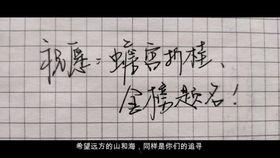 祝愿：蟾宫折桂、
金榜题名！
希望远方的山和海，同样是你们的追寻